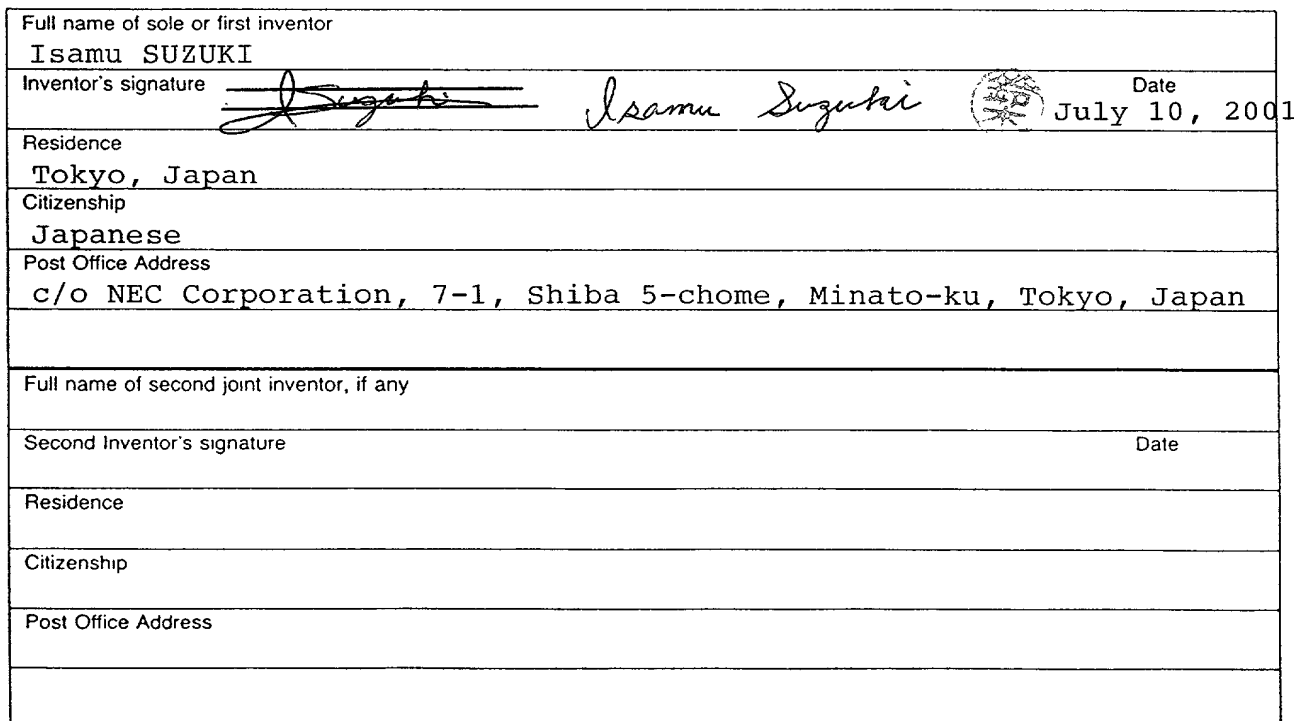 Full name of sole or first inventor
Isamu SUZUKI
Inventor's signature I Suzuki Isamu Suzuki Date
July 10, 2001
Residence
Tokyo, Japan
Citizenship
Japanese
Post Office Address
c/o NEC Corporation, 7-1, Shiba 5-chome, Minato-ku, Tokyo, Japan
Full name of second joint inventor, if any
Second Inventor's signature Date
Residence
Citizenship
Post Office Address